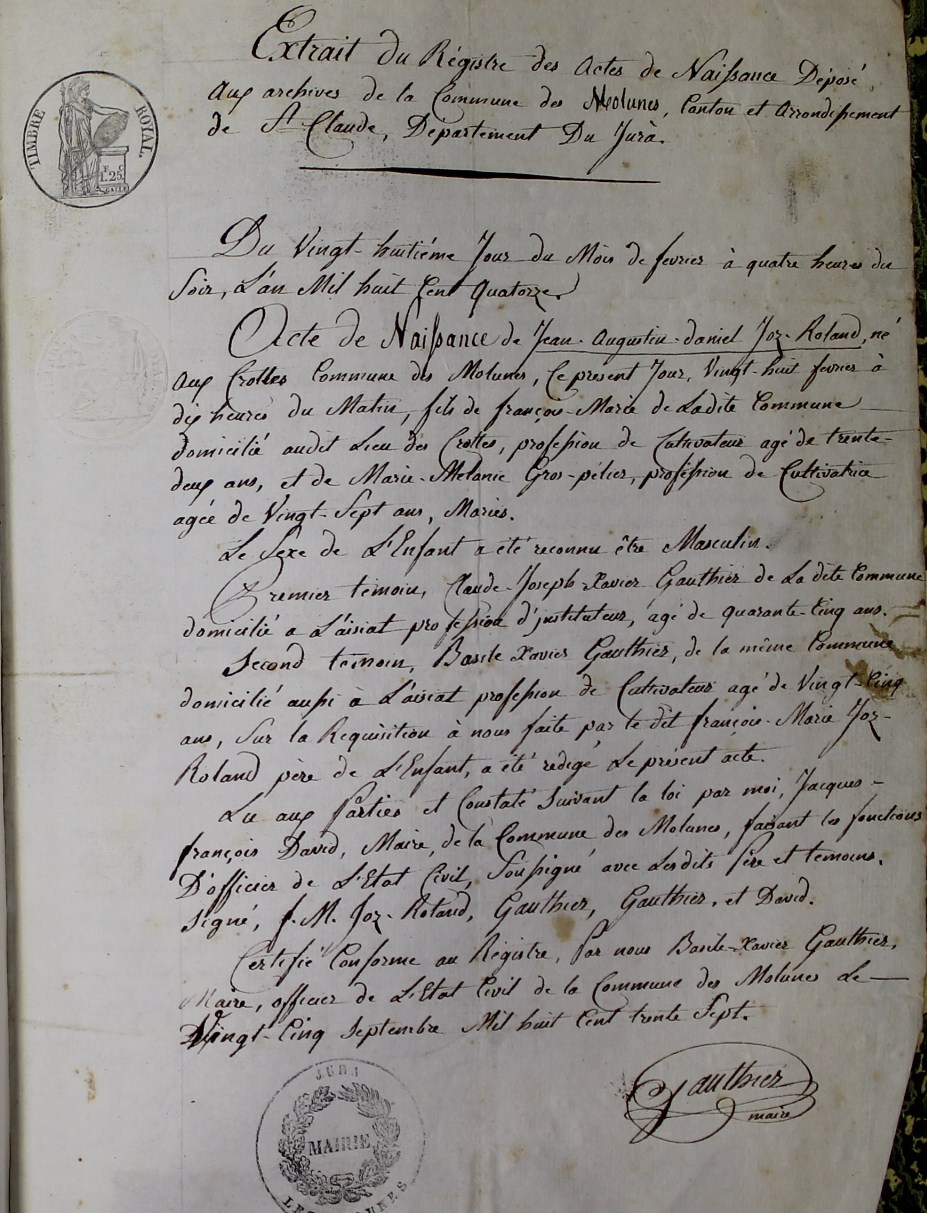 TIMBRE ROYAL.
F. C.
1. 25.
Extrait du Régistre des Actes de Naissance Déposé
Aux archives de la Commune des Molunes, Canton et Arrondissement
de St Claude, Département Du Jura.
Du Vingt-huitiéme Jour du Mois de fevrier à quatre heures du
Soir, L'an Mil huit Cent Quatorze.
Acte de Naissance de Jean-Augustin-Daniel Joz-Roland, né
Aux Crottes Commune des Molunes, Ce present Jour, Vingt-huit fevrier à
dix heures du Matin, fils de françois-Marie de Ladite Commune
domicilié audit Lieu des Crottes, profession de Cultivateur agé de trente-
deux ans, et de Marie-Mélanie Gros-pélier, profession de Cultivatrice
agée de Vingt-Sept ans, Mariés.
Le Sexe de L'Enfant a été reconnu être Masculin.
Premier témoin, Claude-Joseph-Xavier Gauthier de La dite Commune
domicilié a L'aisiat profession d'instituteur, agé de quarante-Cinq ans.
Second témoin, Basile Xavier Gauthier, de la même Commune
domicilié aussi à L'aisiat profession de Cultivateur agé de Vingt-Cinq
ans, Sur la Requisition à nous faite par le dit françois-Marie Joz-
Roland père de L'Enfant, a été rédigé Le présent acte.
Lu aux Parties et Constaté Suivant la loi par moi, Jacques-
françois David, Maire, de la Commune des Molunes, faisant les fonctions
D'officier de L'Etat Civil, Soussigné avec Lesdits Père et témoins.
Signé, f. M. Joz-Roland, Gauthier, Gauthier, et David.
Certifié Conforme au Régistre, Par nous Basile-Xavier Gauthier,
Maire, officier de L'Etat Civil de la Commune des Molunes Le
Vingt-Cinq Septembre Mil huit Cent trente Sept.
Gauthier
maire
JURA
MAIRIE